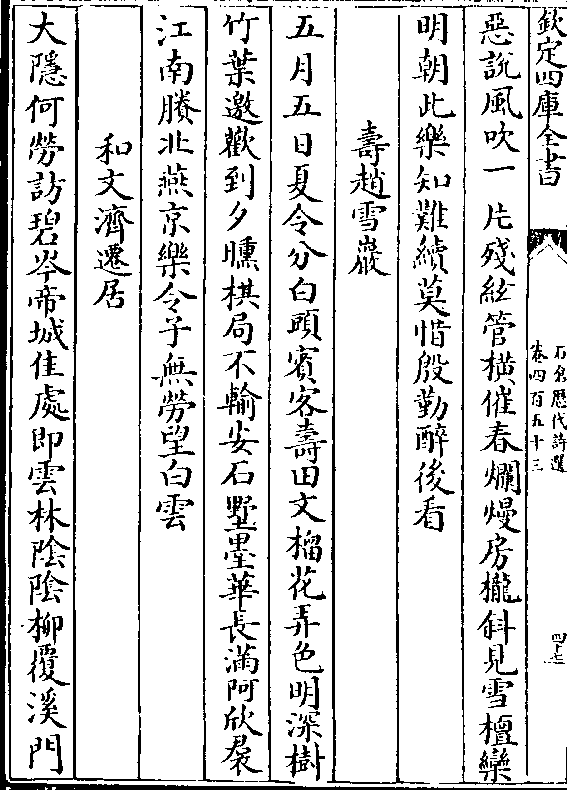 欽定四庫全書
石倉歷代詩選
卷四百五十三
四十七
惡說風吹一片殘絃管橫催春爛熳房櫳斜見雪檀欒
明朝此樂知難續莫惜殷勤醉後看
壽趙雪巖
五月五日夏令分白頭賓客壽田文榴花弄色明深樹
竹葉邀歡到夕曛棋局不輸安石墅墨華長滿阿欣裠
江南賸北燕京樂令子無勞望白雲
和文濟遷居
大隱何勞訪碧岑帝城佳處即雲林陰陰柳覆溪門